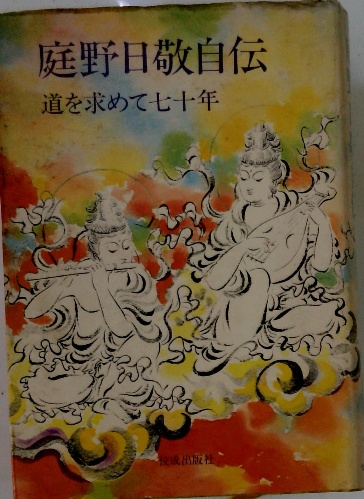 庭野日敬自伝
道を求めて七十年
佼成出版社